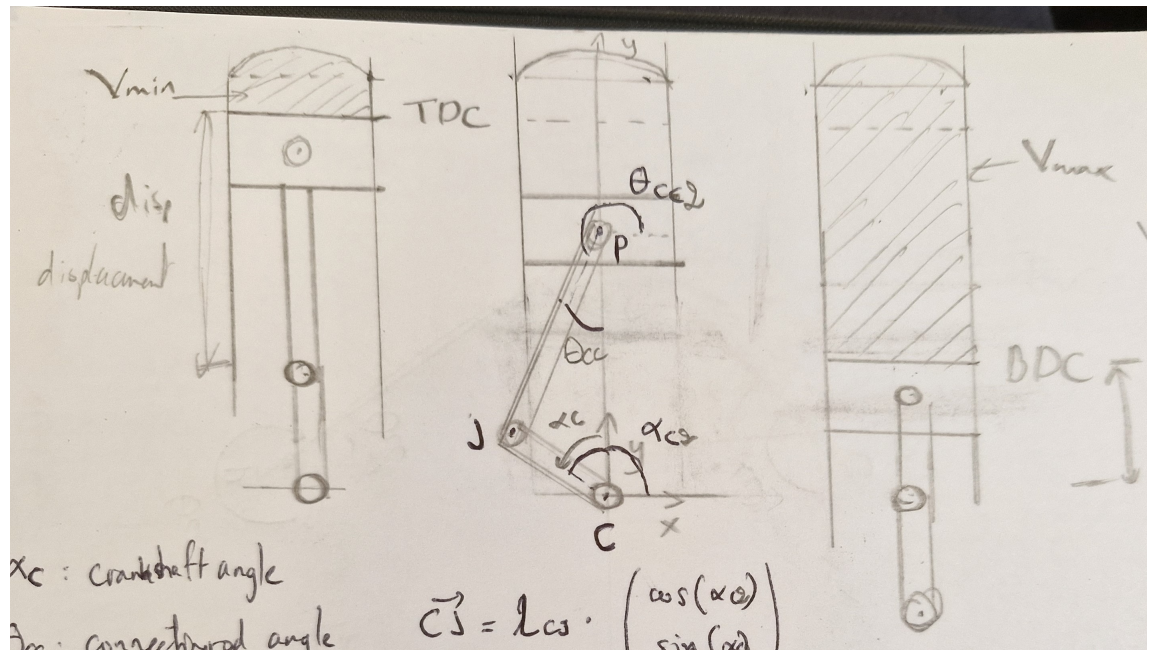 Vmin
TDC
disp
displacment
y
θcc2
P
θcc
J
αc
αc2
y
x
C
Vmax
BDC
αc : crankshaft angle
θcc : connectionrod angle
CJ = lcs · (cos(αc2)
sin(αc)